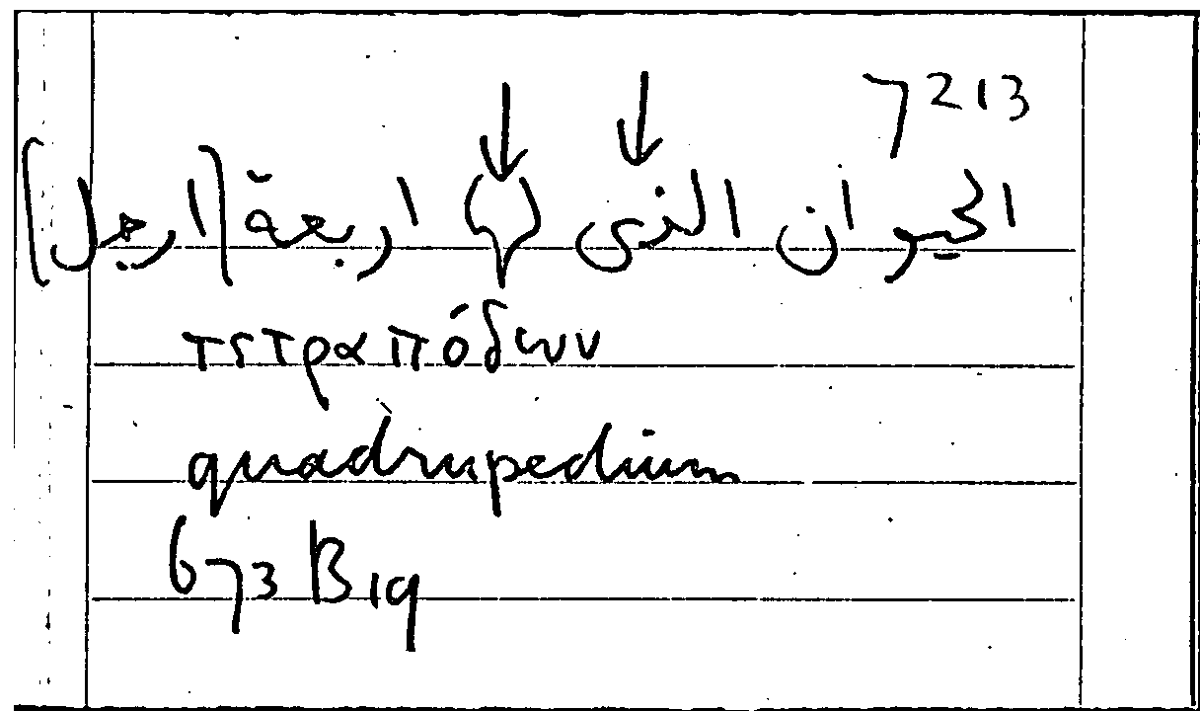 7213
الحيوان الذى () اربعة [ارجل]
τετραπόδων
quadrupedium
673 B19